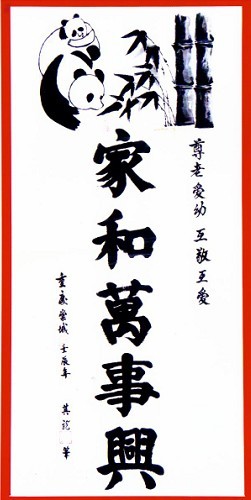 尊老愛幼 互敬互愛
家和萬事興
重慶榮城 壬辰年 其龍 筆